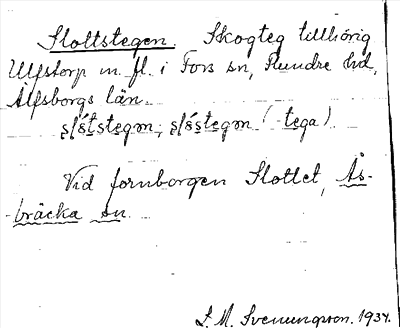 Slottstegen. Skogteg tillhörig
Ulfstorp m. fl. i Fors sn, Flundre hd,
Älfsborgs län.
Vid fornborgen Slottet, Ås-
-bräcka sn.
S. M. Svenungsson. 1934.